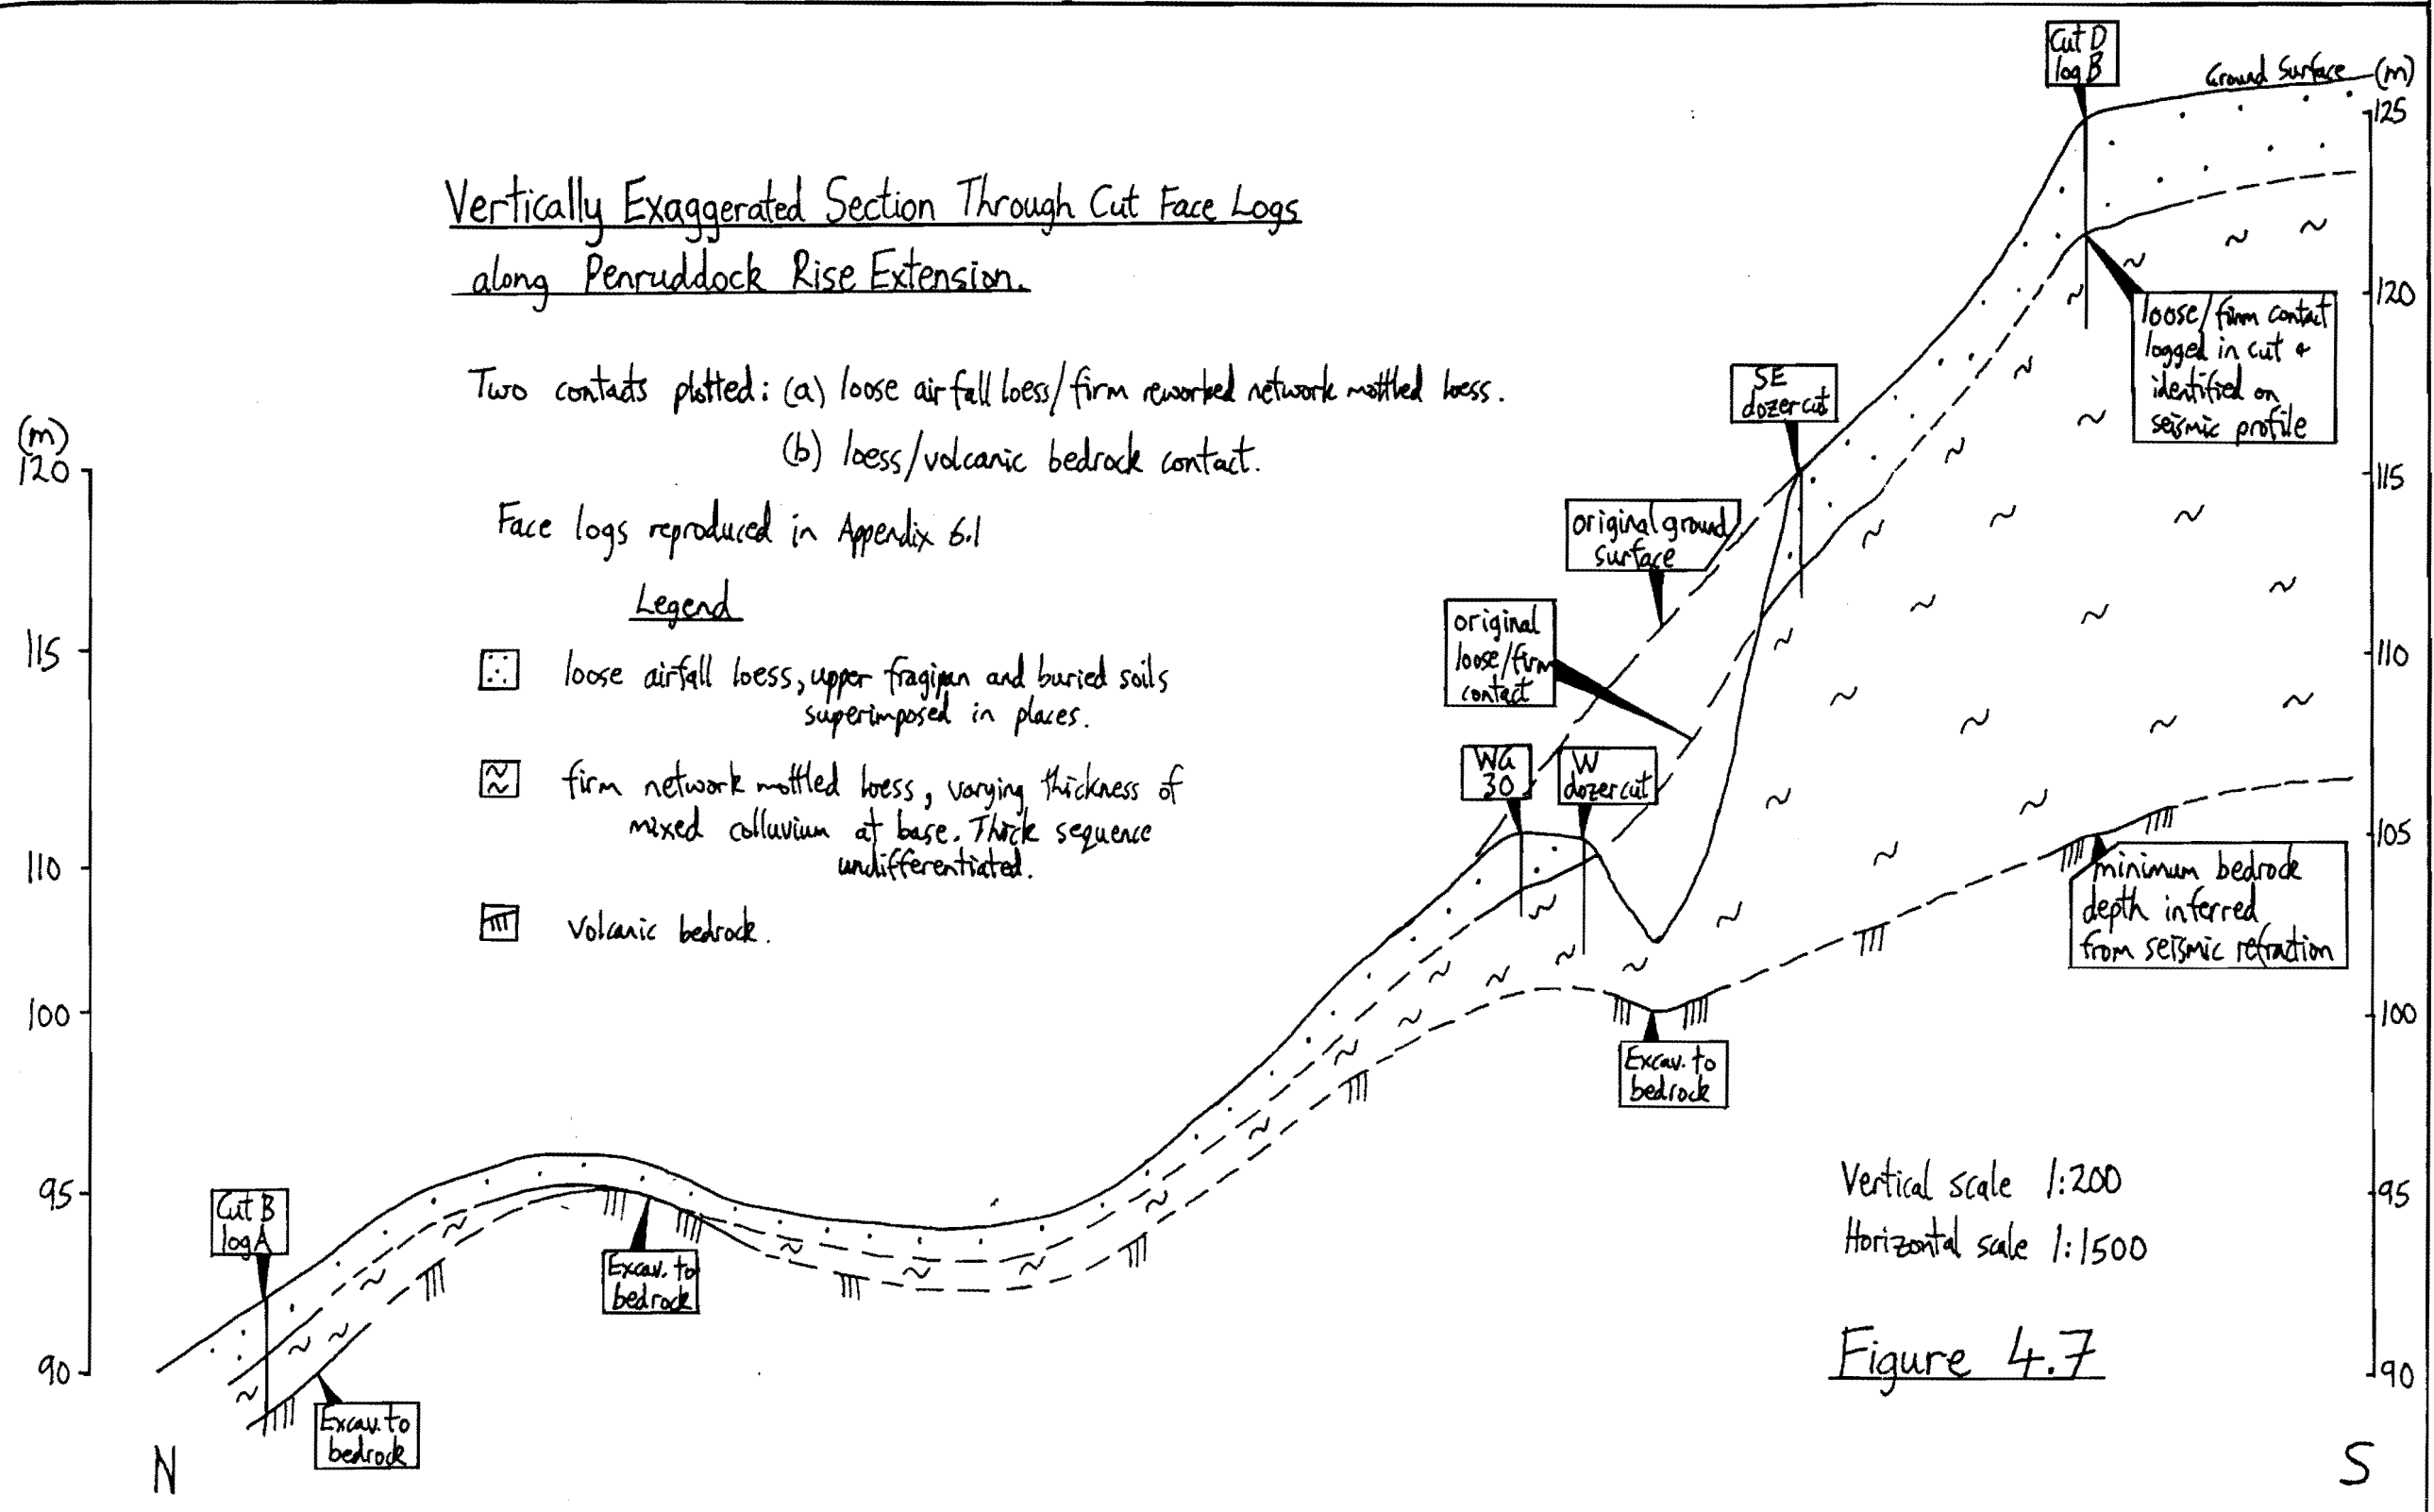 Vertically Exaggerated Section Through Cut Face Logs
along Penruddock Rise Extension.
Two contacts plotted: (a) loose airfall loess/firm reworked network mottled loess.
(b) loess/volcanic bedrock contact.
Face logs reproduced in Appendix 6.1
Legend
loose airfall loess, upper fragipan and buried soils
superimposed in places.
firm network mottled loess, varying thickness of
mixed colluvium at base. Thick sequence
undifferentiated.
volcanic bedrock.
(m)
120
115
110
100
95
90
Cut B
log A
Excav. to
bedrock
Excav. to
bedrock
N
WG
30
W
dozer cut
original
loose/firm
contact
original ground
surface
SE
dozer cut
Excav. to
bedrock
Cut D
log B
Ground Surface
(m)
125
120
115
110
105
100
95
90
loose/firm contact
logged in cut &
identified on
seismic profile
minimum bedrock
depth inferred
from seismic refraction
Vertical scale 1:200
Horizontal scale 1:1500
Figure 4.7
S